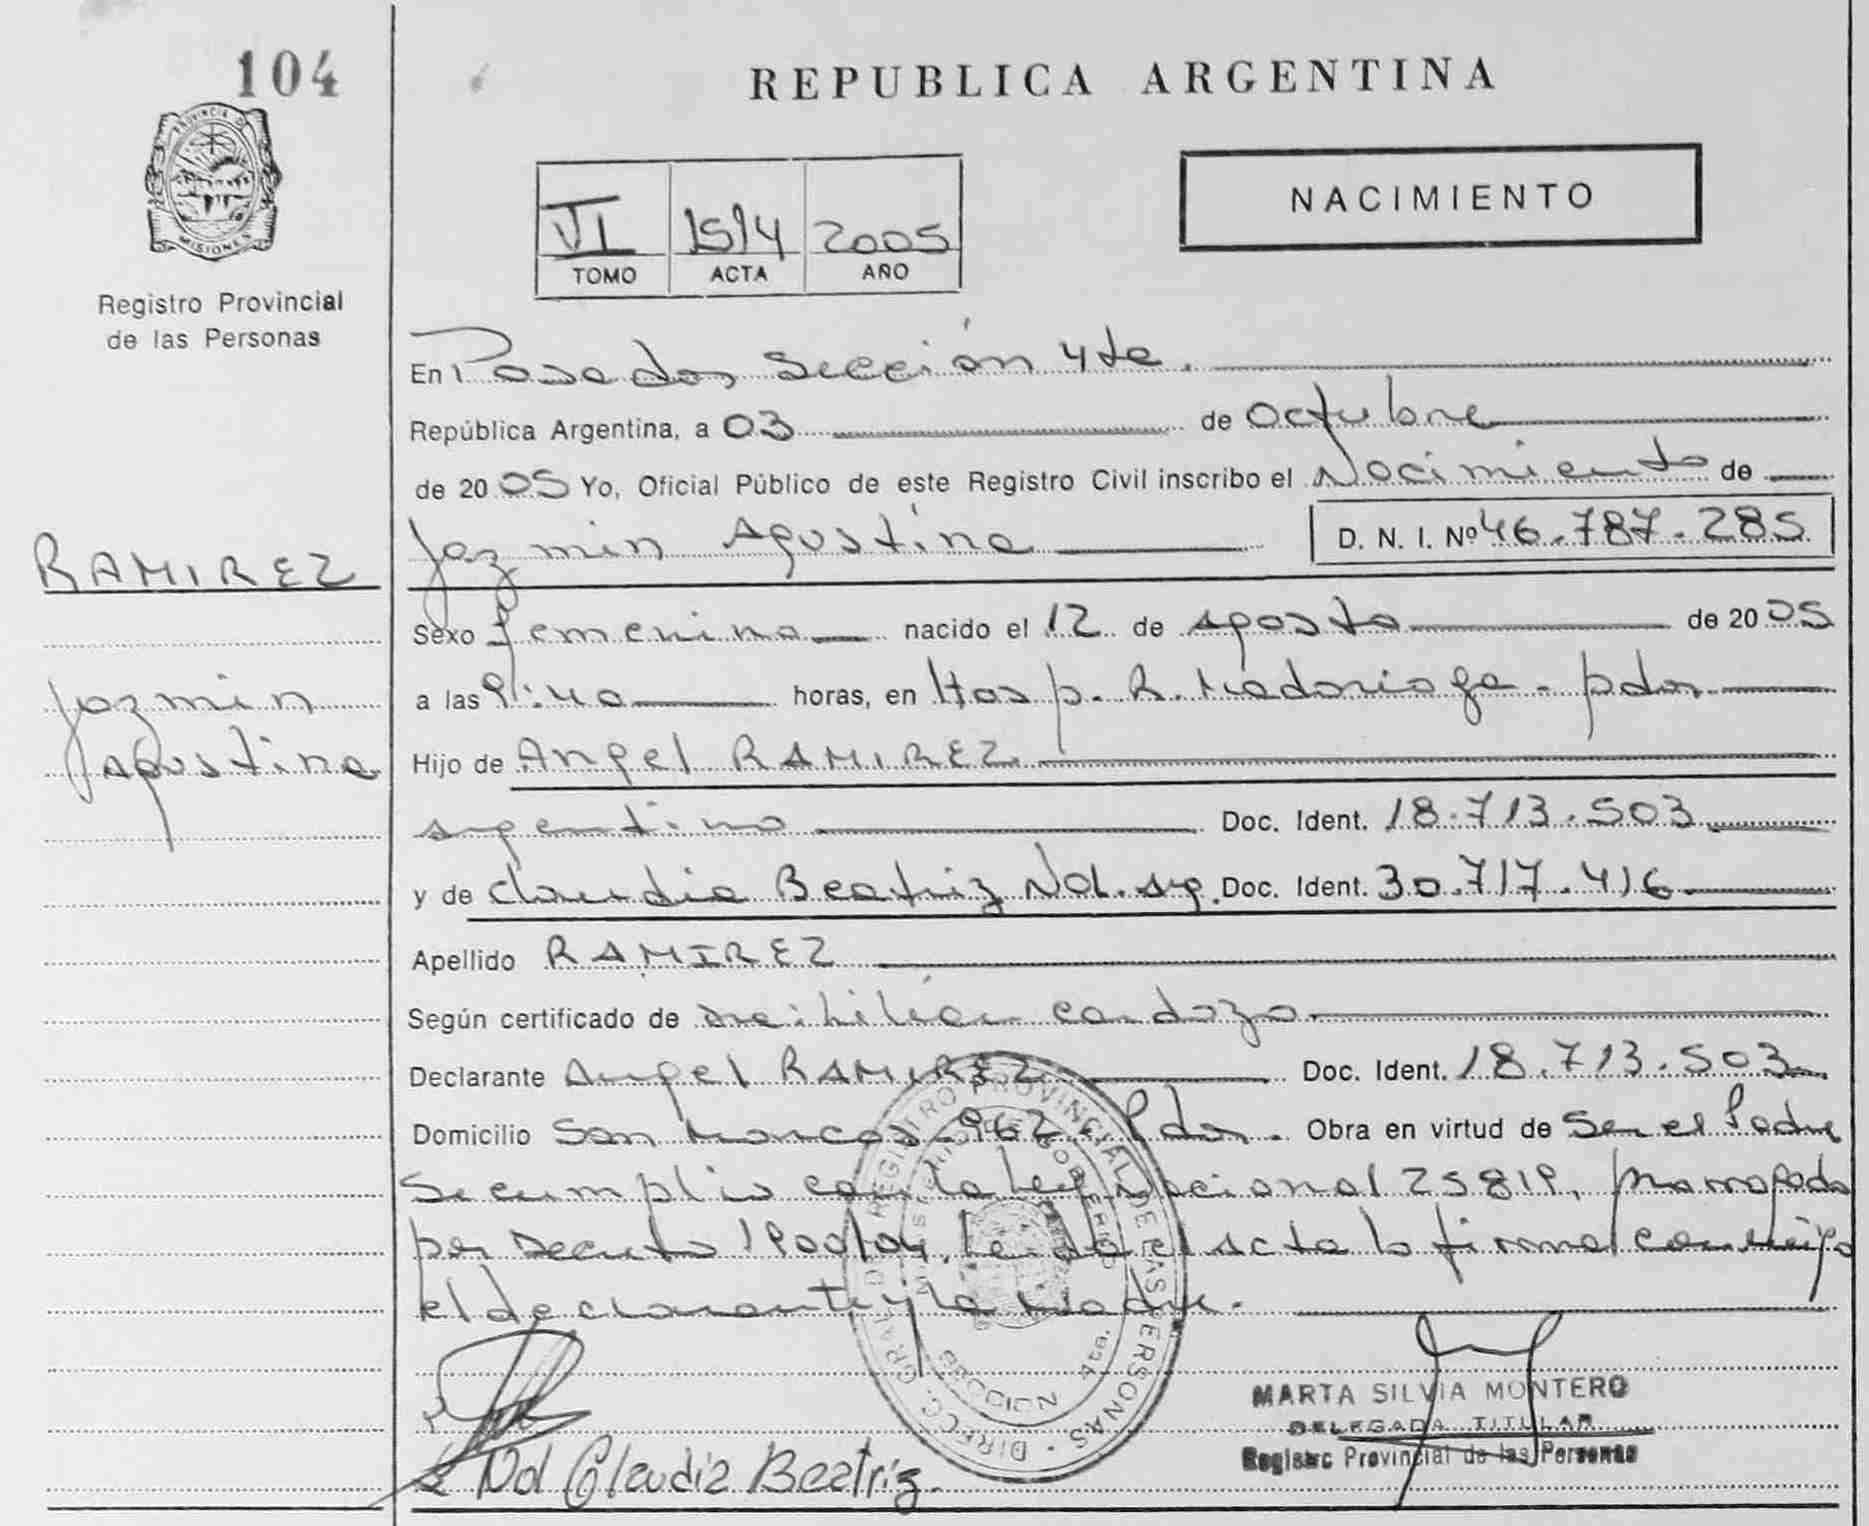 104
PROVINCIA DE
MISIONES
Registro Provincial
de las Personas
REPUBLICA ARGENTINA
NACIMIENTO
VI 1514 2005
TOMO ACTA AÑO
En Posadas Sección 4ta.
República Argentina, a 03 de Octubre
de 2005 Yo, Oficial Público de este Registro Civil inscribo el Nacimiento de
Jazmin Agustina D. N. I. Nº 46.787.285
RAMIREZ
Jazmin
Agustina
Sexo femenino nacido el 12 de agosto de 2005
a las horas, en Hosp. R. Madariaga - pdas
Hijo de Angel RAMIREZ
argentino Doc. Ident. 18.713.503
y de Claudia Beatriz Nol. arg. Doc. Ident. 30.717.416
Apellido RAMIREZ
Según certificado de Cardozo
Declarante Angel RAMIREZ Doc. Ident. 18.713.503
Domicilio San Marcos 962 - Pdas. Obra en virtud de Ser el Padre
Se cumplio con la ley Nacional 25819, prorrogada
por Decreto 1900/04. Leida el acta la firma conmigo
el declarante y la Madre.
DIRECC. GRAL. DE REGISTRO PROVINCIAL DE LAS PERSONAS
SECCION 4ta.
MARTA SILVIA MONTERO
DELEGADA TITULAR
Registro Provincial de las Personas
Nol Claudia Beatriz.